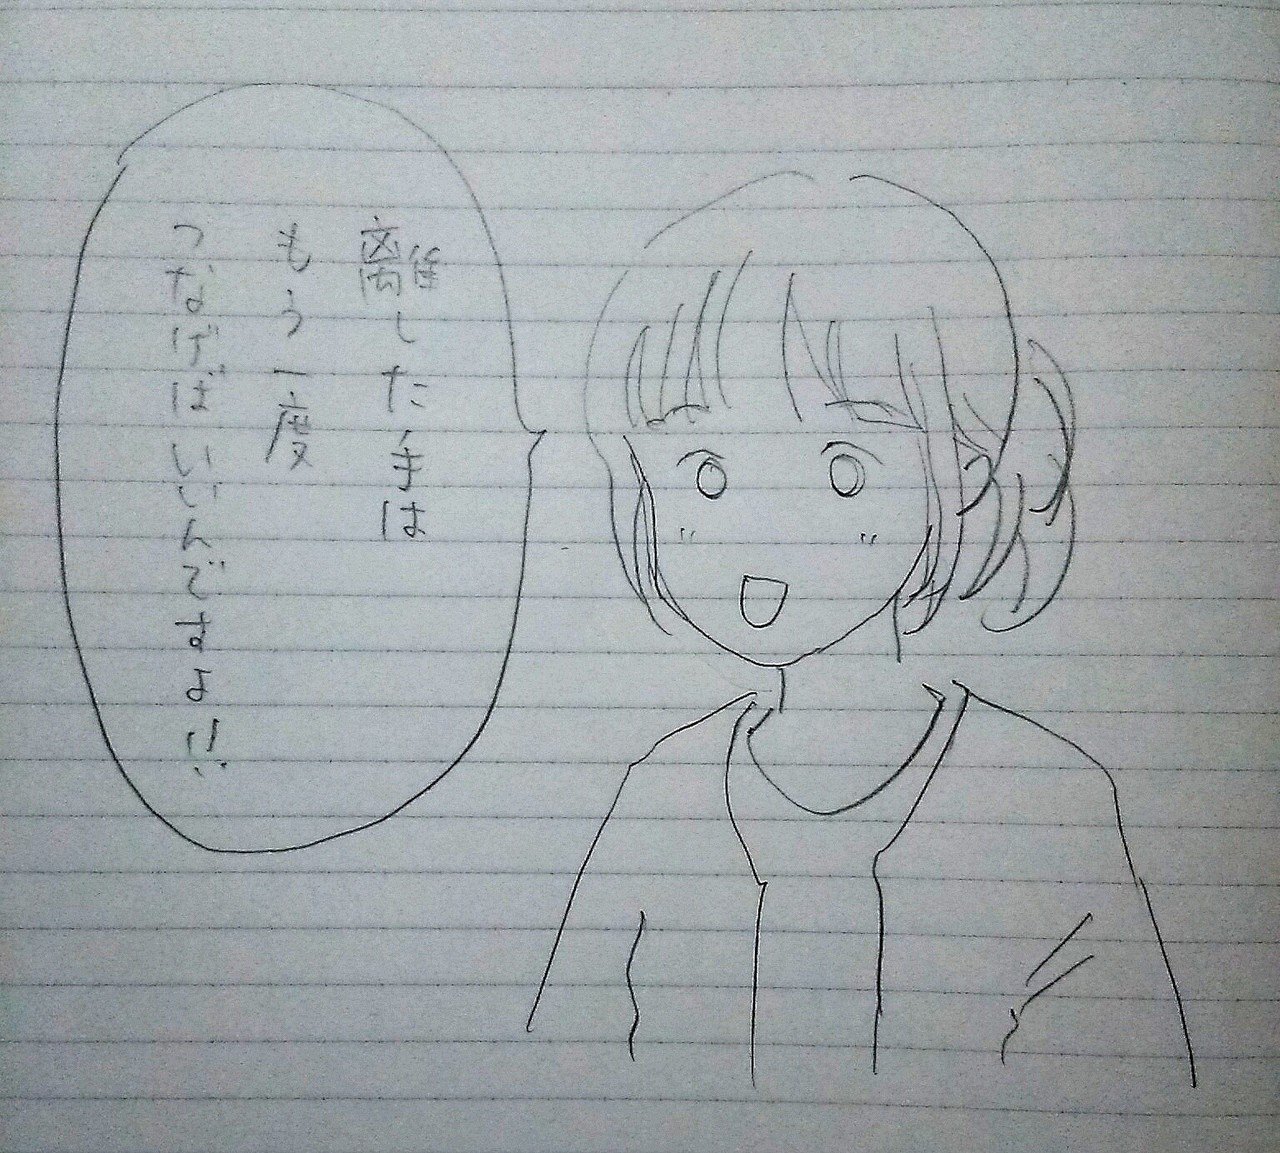 離した手は
もう一度
つなげばいいんですよ!!